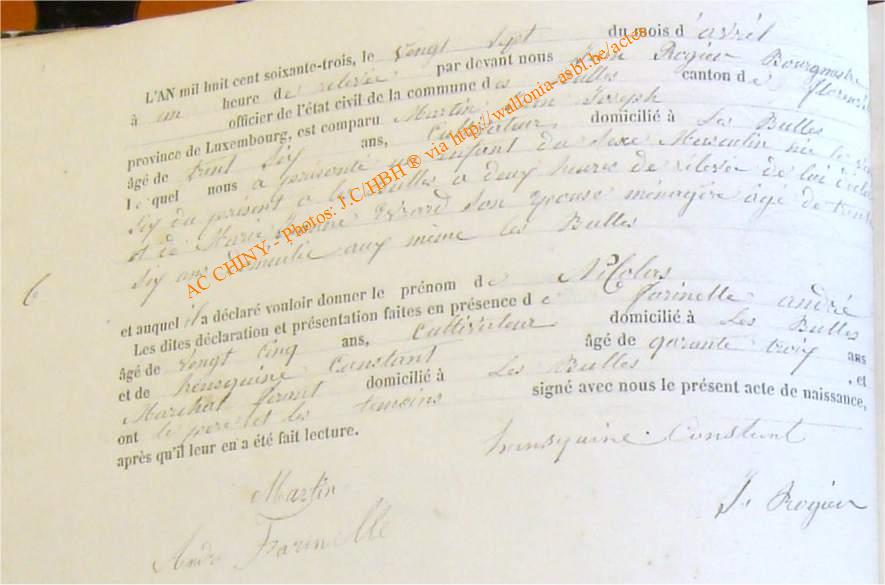 L'AN mil huit cent soixante-trois, le vengt sept du mois d'avril
à un heure de relevée par devant nous Rogier Bourgmestre
officier de l'état civil de la commune des Bulles canton de florenville
province de Luxembourg, est comparu Martin Joseph
âgé de trent six ans, Cultivateur domicilié à Les Bulles
lequel nous a présenté un enfant du sexe Masculin née le
six du présent a les Bulles a deux heures de relevée de lui déclarant
et de Marie Evrard son epouse ménagère âgé de trente
six ans domicilié aux même les Bulles
6
et auquel il a déclaré vouloir donner le prénom de Nicolas
Les dites déclaration et présentation faites en présence de farinelle andré
âgé de vengt cinq ans, cultivateur domicilié à Les Bulles
et de hensquine Constant âgé de qarante troix ans
Marchal ferant domicilié à Les Bulles , et
ont le pere et les temoins signé avec nous le présent acte de naissance,
après qu'il leur en a été fait lecture.
hensquine Constant
Martin
J. Rogier
André Farinelle
AC CHINY - Photos: J.C/HBH ® via http://wallonia-asbl.be/actes